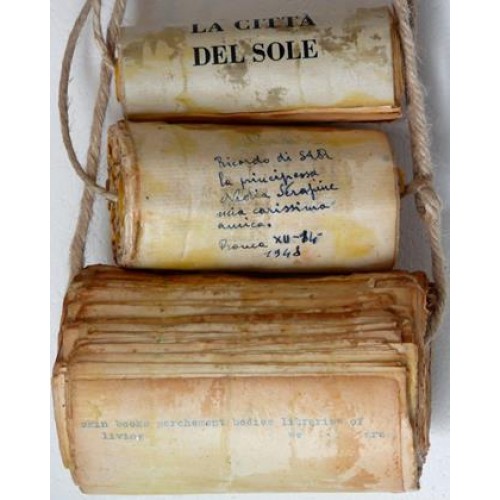 LA CITTÀ
DEL SOLE
Ricordo di SAR
la principessa
Serafine
mia carissima
amica.
XII-84-
1948
skin books parchement bodies libraries of
living we are